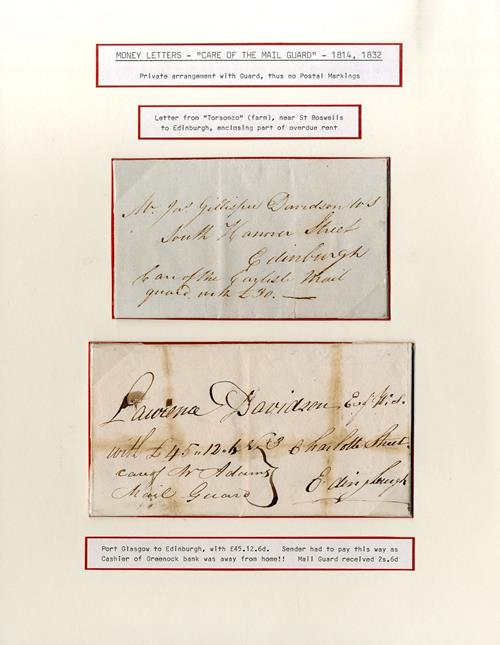 MONEY LETTERS - "CARE OF THE MAIL GUARD" - 1814, 1832
Private arrangement with Guard, thus no Postal Markings
Letter from "Torsonco" (farm), near St Boswells
to Edinburgh, enclosing part of overdue rent
Mr. Jas Gillespie Davidson W.S
South Hanover Street
Edinburgh
Care of the Carlisle Mail
guard with £30.
Lawrence Davidson Esqr. W.S.
with £45"12.6 Charlotte Street
care of Wm Adams
Mail Guard
Edinburgh
Port Glasgow to Edinburgh, with £45.12.6d. Sender had to pay this way as
Cashier of Greenock bank was away from home!! Mail Guard received 2s.6d